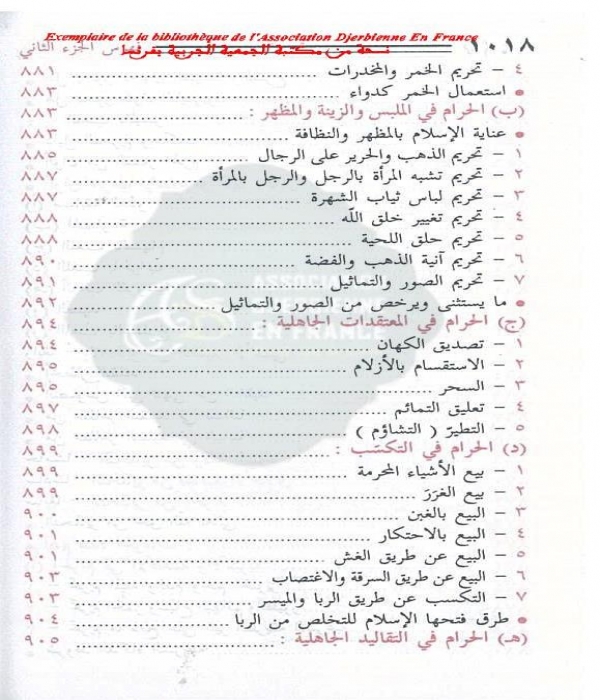 Exemplaire de la bibliothèque de l'Association Djerbienne En France
نسخة من مكتبة الجمعية الجربية بفرنسا
١٠١٨ فهرس الجزء الثاني
٤ – تحريم الخمر والمخدرات ........ ٨٨١
• استعمال الخمر كدواء ........ ٨٨٣
(ب) الحرام في الملبس والزينة والمظهر : ........ ٨٨٣
• عناية الإسلام بالمظهر والنظافة ........ ٨٨٣
١ – تحريم الذهب والحرير على الرجال ........ ٨٨٥
٢ – تحريم تشبه المرأة بالرجل والرجل بالمرأة ........ ٨٨٧
٣ – تحريم لباس ثياب الشهرة ........ ٨٨٧
٤ – تحريم تغيير خلق الله ........ ٨٨٨
٥ – تحريم حلق اللحية ........ ٨٨٨
٦ – تحريم آنية الذهب والفضة ........ ٨٩٠
٧ – تحريم الصور والتماثيل ........ ٨٩١
• ما يستثنى ويرخص من الصور والتماثيل ........ ٨٩٢
(ج) الحرام في المعتقدات الجاهلية : ........ ٨٩٤
١ – تصديق الكهان ........ ٨٩٤
٢ – الاستقسام بالأزلام ........ ٨٩٥
٣ – السحر ........ ٨٩٥
٤ – تعليق التمائم ........ ٨٩٧
٥ – التطيّر ( التشاؤم ) ........ ٨٩٨
(د) الحرام في التكسّب : ........ ٨٩٩
١ – بيع الأشياء المحرمة ........ ٨٩٩
٢ – بيع الغَرَر ........ ٨٩٩
٣ – البيع بالغبن ........ ٩٠٠
٤ – البيع بالاحتكار ........ ٩٠١
٥ – البيع عن طريق الغش ........ ٩٠١
٦ – البيع عن طريق السرقة والاغتصاب ........ ٩٠٣
٧ – التكسب عن طريق الربا والميسر ........ ٩٠٣
• طرق فتحها الإسلام للتخلص من الربا ........ ٩٠٤
(هـ) الحرام في التقاليد الجاهلية : ........ ٩٠٥
ASSOCIATION
EN FRANCE